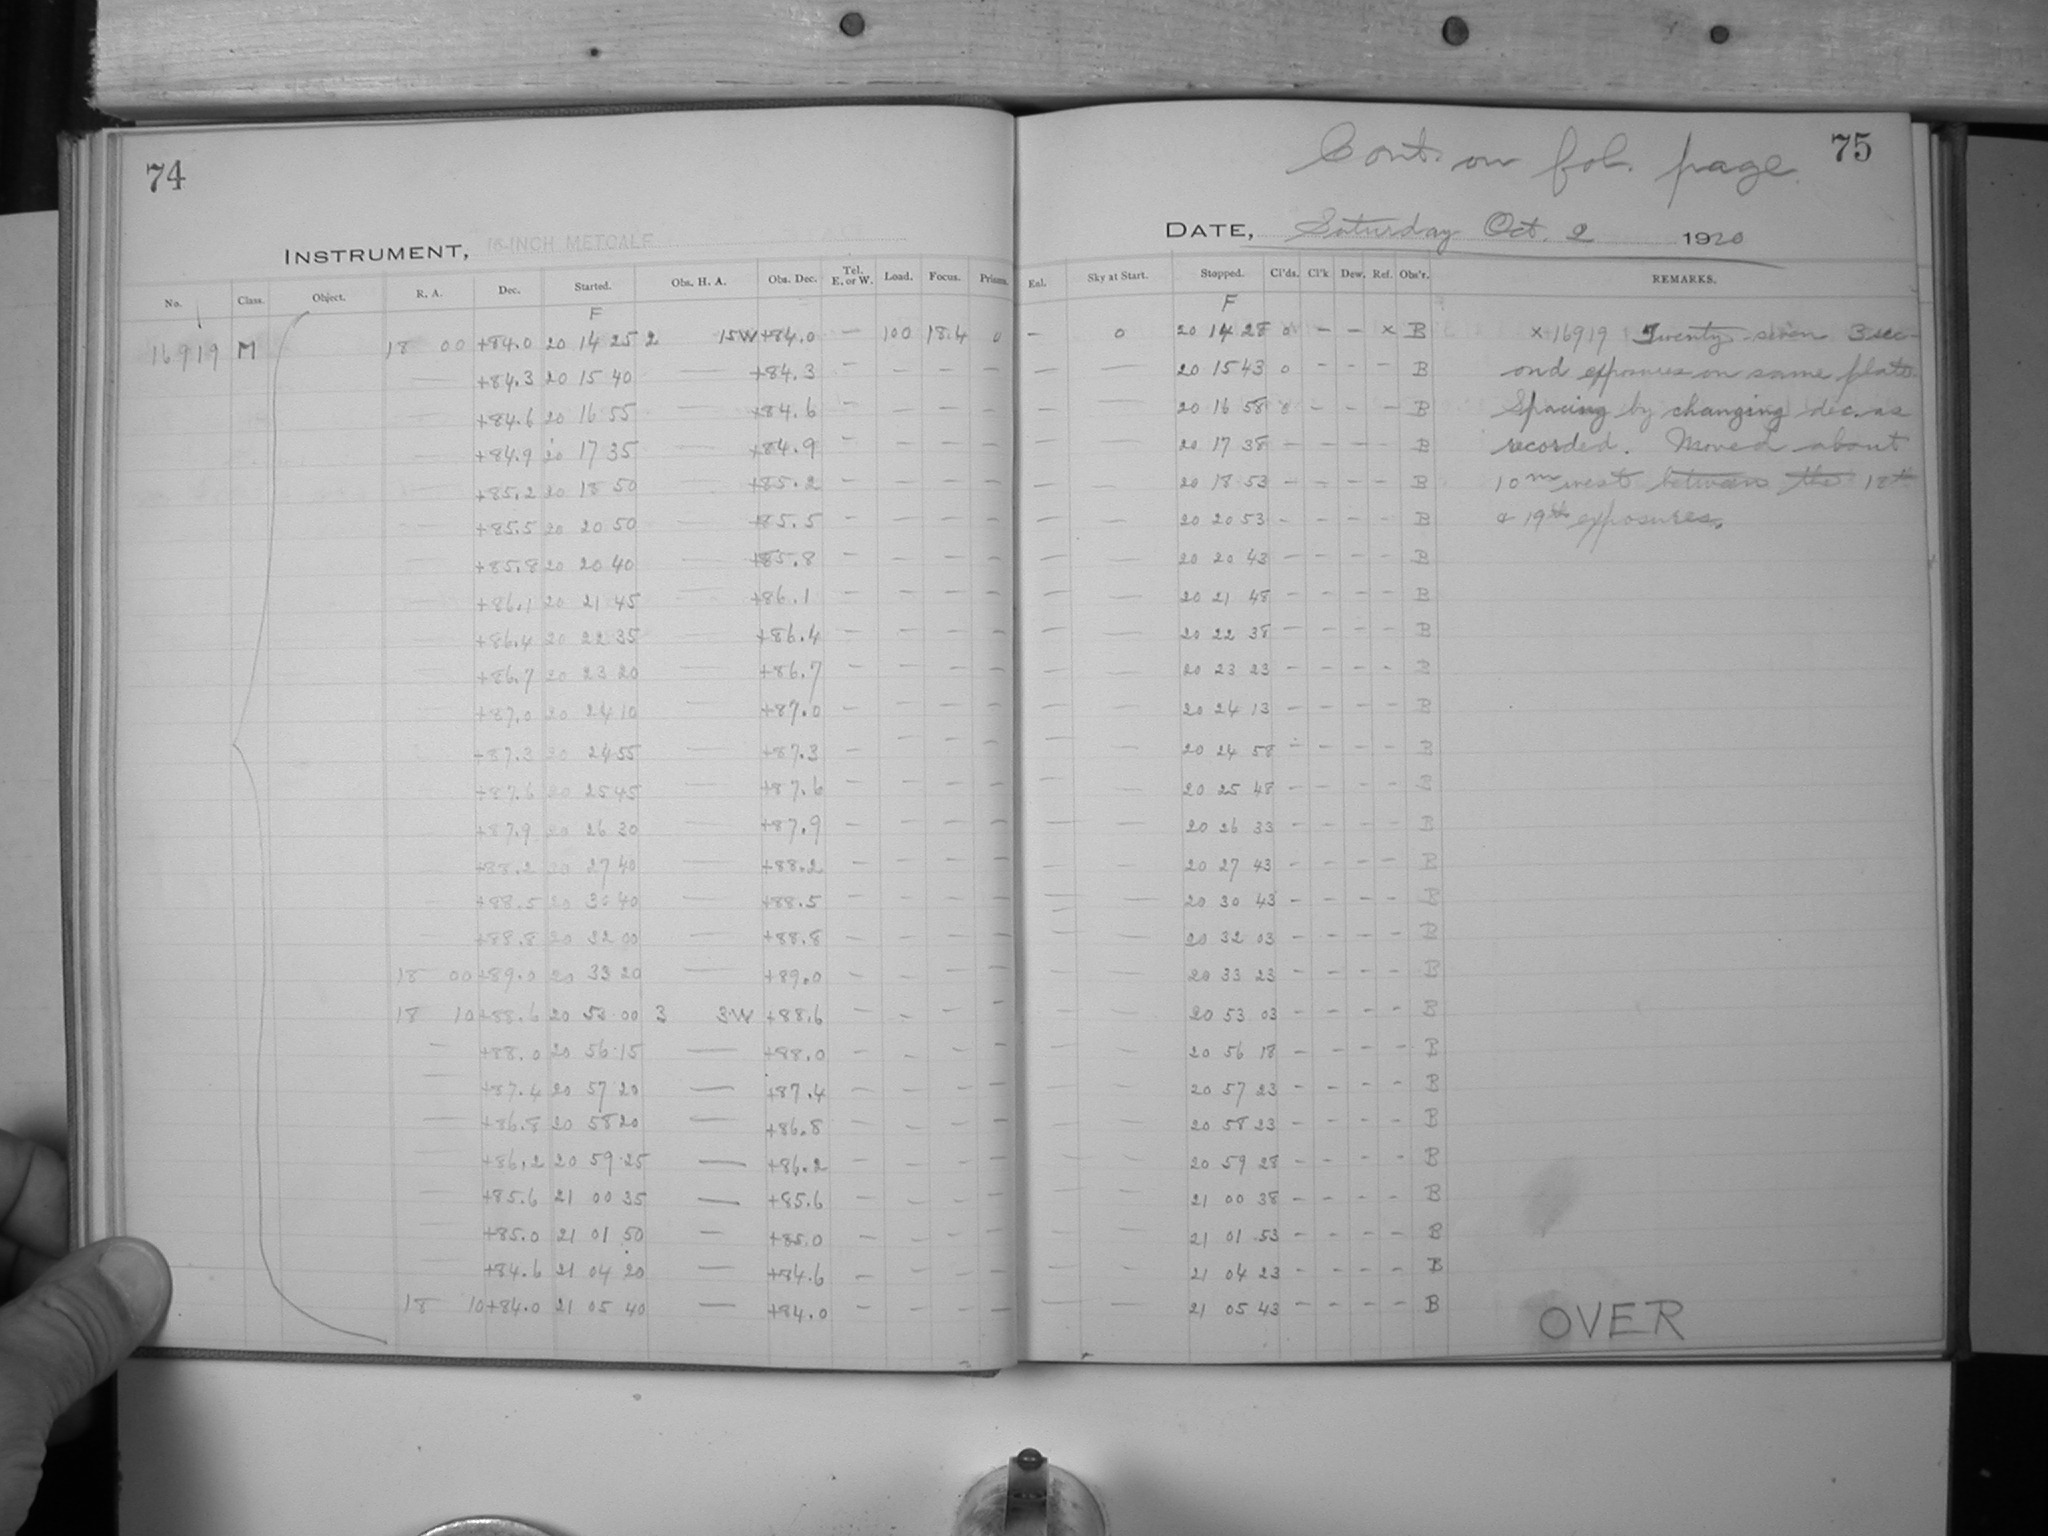 74
INSTRUMENT, 16-INCH METCALF
No. Class. Object. R. A. Dec. Started. Obs. H. A. Obs. Dec. Tel. E. or W. Load. Focus. Prisms.
F
16919 M 18 00 +84.0 20 14 25 2 15W +84.0 — 100 18.4 0
— +84.3 20 15 40 — +84.3 — — — —
— +84.6 20 16 55 — +84.6 — — — —
— +84.9 20 17 35 — +84.9 — — — —
— +85.2 20 18 50 — +85.2 — — — —
— +85.5 20 20 50 — +85.5 — — — —
— +85.8 20 20 40 — +85.8 — — — —
— +86.1 20 21 45 — +86.1 — — — —
— +86.4 20 22 35 — +86.4 — — — —
— +86.7 20 23 20 — +86.7 — — — —
— +87.0 20 24 10 — +87.0 — — — —
— +87.3 20 24 55 — +87.3 — — — —
— +87.6 20 25 45 — +87.6 — — — —
— +87.9 20 26 30 — +87.9 — — — —
— +88.2 20 27 40 — +88.2 — — — —
— +88.5 20 30 40 — +88.5 — — — —
— +88.8 20 32 00 — +88.8 — — — —
18 00 +89.0 20 33 20 — +89.0 — — — —
18 10 +88.6 20 53 00 3 3W +88.6 — — — —
— +88.0 20 56 15 — +88.0 — — — —
— +87.4 20 57 20 — +87.4 — — — —
— +86.8 20 58 20 — +86.8 — — — —
— +86.2 20 59 25 — +86.2 — — — —
— +85.6 21 00 35 — +85.6 — — — —
— +85.0 21 01 50 — +85.0 — — — —
— +84.6 21 04 20 — +84.6 — — — —
18 10 +84.0 21 05 40 — +84.0 — — — —
Cont. on fol. page.
75
DATE, Saturday Oct. 2 1920
Enl. Sky at Start. Stopped. Cl'ds. Cl'k Dew. Ref. Obs'r. REMARKS.
F
— 0 20 14 28 0 — — x B x 16919 Twenty-seven 3 sec-
— — 20 15 43 0 — — — B ond exposures on same plate.
— — 20 16 58 0 — — — B Spacing by changing dec. as
— — 20 17 38 — — — — B recorded. Moved about
— — 20 18 53 — — — — B 10m west between the 18th
— — 20 20 53 — — — — B & 19th exposures.
— — 20 20 43 — — — — B
— — 20 21 48 — — — — B
— — 20 22 38 — — — — B
— — 20 23 23 — — — — B
— — 20 24 13 — — — — B
— — 20 24 58 — — — — B
— — 20 25 48 — — — — B
— — 20 26 33 — — — — B
— — 20 27 43 — — — — B
— — 20 30 43 — — — — B
— — 20 32 03 — — — — B
— — 20 33 23 — — — — B
— — 20 53 03 — — — — B
— — 20 56 18 — — — — B
— — 20 57 23 — — — — B
— — 20 58 23 — — — — B
— — 20 59 28 — — — — B
— — 21 00 38 — — — — B
— — 21 01 53 — — — — B
— — 21 04 23 — — — — B
— — 21 05 43 — — — — B
OVER